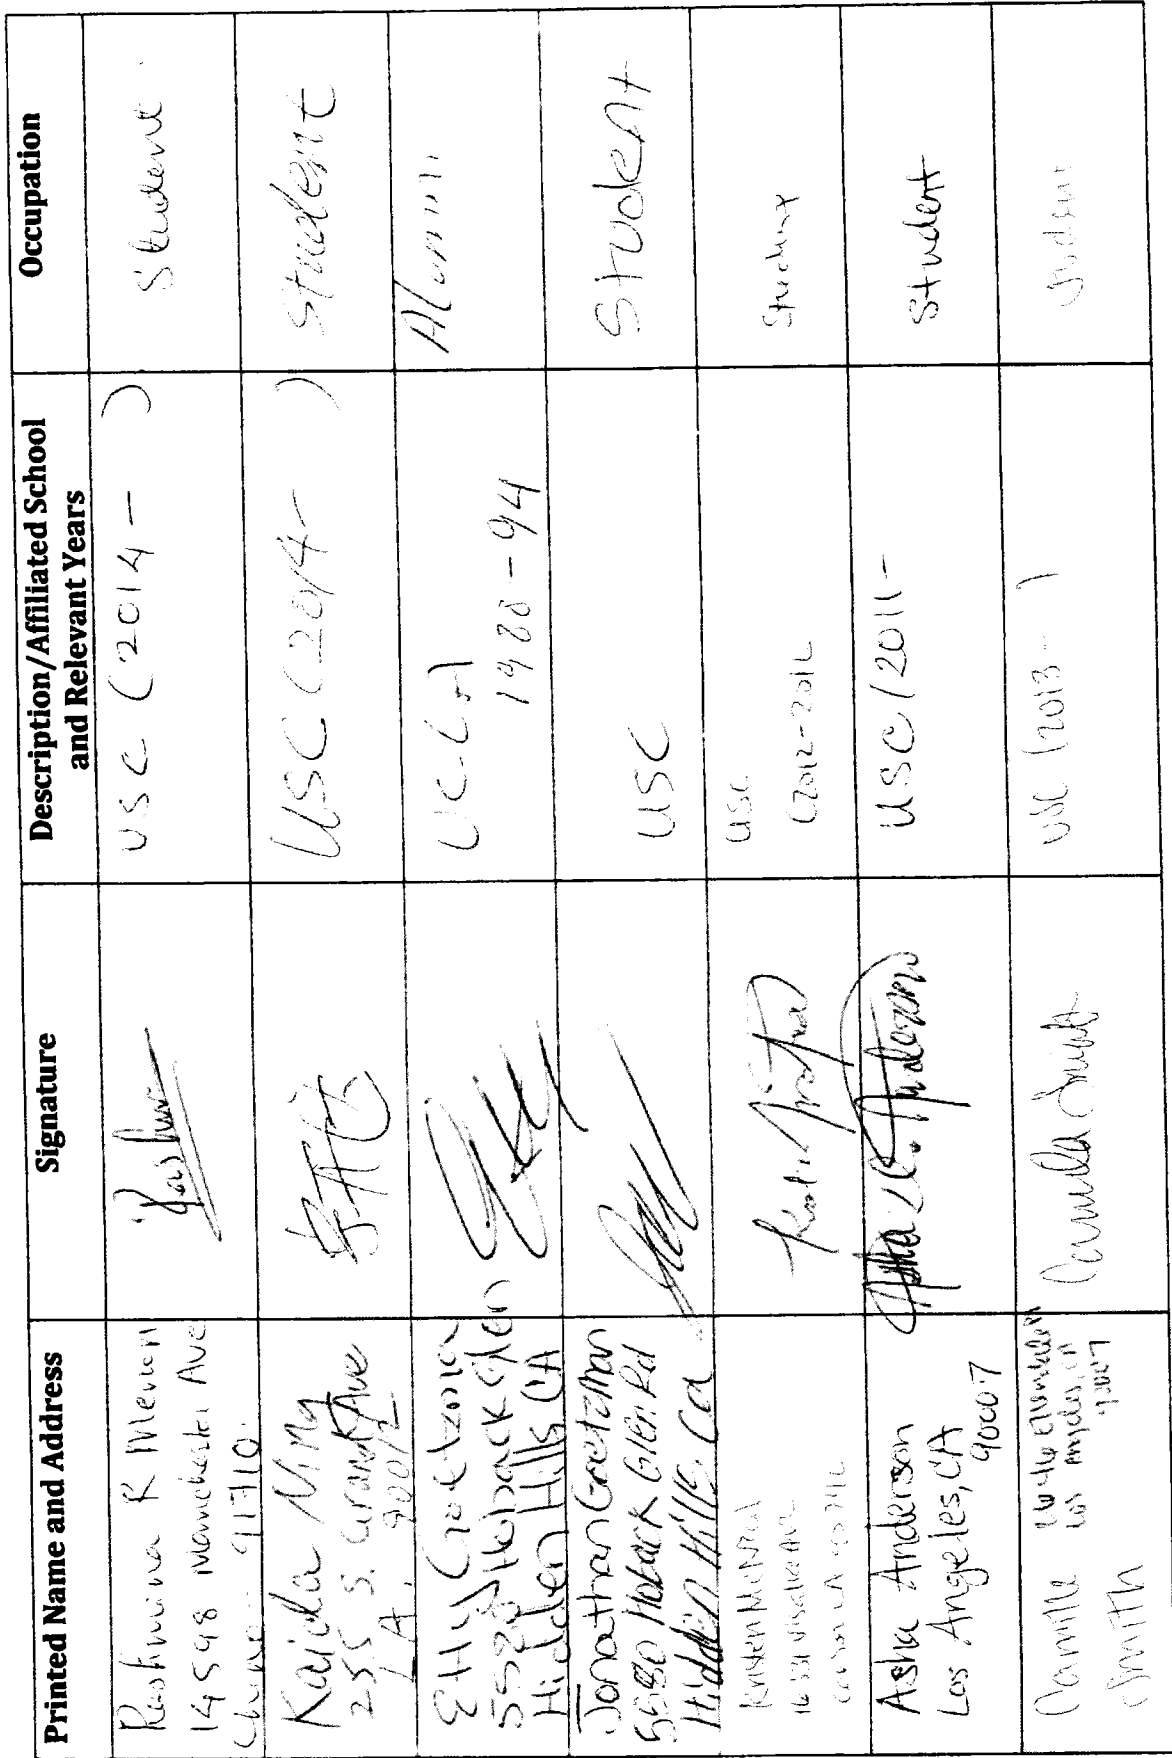 Printed Name and Address
Signature
Description/Affiliated School
and Relevant Years
Occupation
Rashmina R Menon
14598 Manchester Ave
Chino 91710
USC (2014 - )
Student
Kaida
255 S. Grand Ave
LA. 90012
USC (2014- )
Student
5580 Hoback Glen
Hidden Hills CA
UCLA
1988-94
Alumni
Jonathan Goetzman
5580 Hoback Glen Rd
Hidden Hills, Ca
USC
Student
Kristen McNeal
Ave
USC
Student
Asha Anderson
Los Angeles, CA
90007
USC (2011-
Student
Camille
Smith
Los Angeles, CA
90007
Camille Smith
USC (2013- )